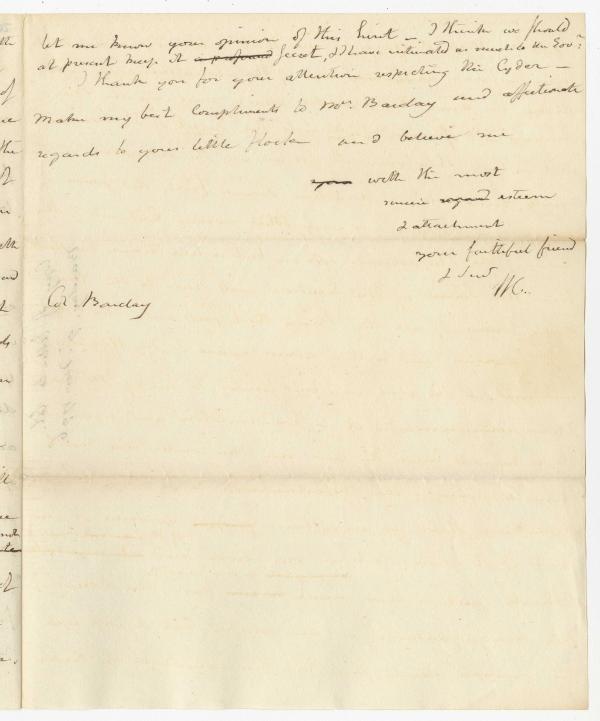 let me know your opinion of this hint — I think we should
at present keep it a profound secret, & I have intimated as much to the Govr:
I thank you for your attention respecting the Cyder —
Make my best Compliments to Mrs. Barclay and affectionate
regards to your little flock and believe me
your with the most
sincere regard esteem
& attachment
your faithful friend
& Servt
WC.
Col. Barclay